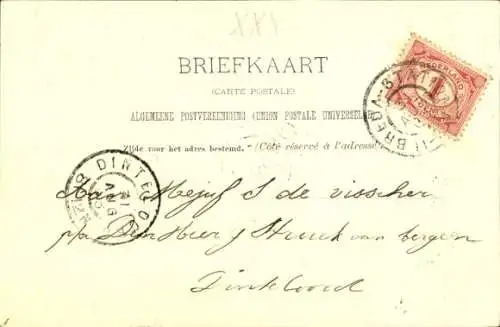 XXI
BRIEFKAART
(CARTE POSTALE)
ALGEMEENE POSTVEREENIGING (UNION POSTALE UNIVERSELLE)
Zijde voor het adres bestemd. (Côté réservé à l'adresse)
NEDERLAND
1
BREDA-STATION
DINTELOORD
AUG
Aan Mejuf S de Visscher
p/a Den Heer J Struuk van bergen
Dinteloord